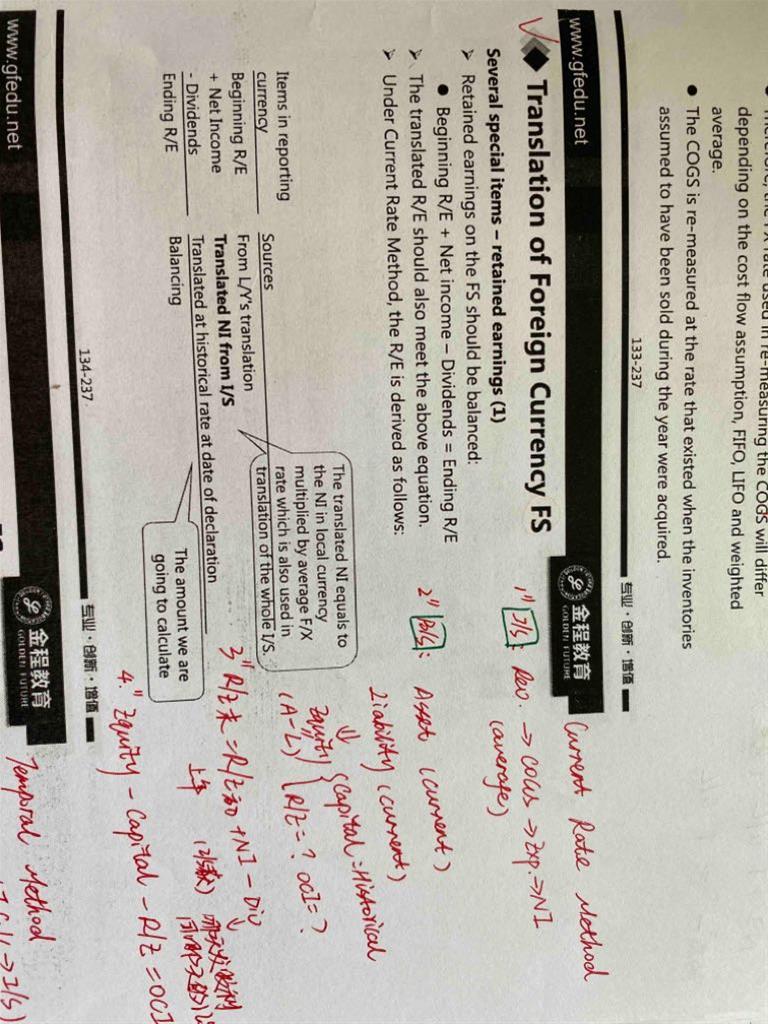 depending on the cost flow assumption, FIFO, LIFO and weighted
average.
● The COGS is re-measured at the rate that existed when the inventories
assumed to have been sold during the year were acquired.
133-237
专业·创新·增值
www.gfedu.net
金程教育
GOLDEN FUTURE
Translation of Foreign Currency FS
Several special items – retained earnings (1)
➢ Retained earnings on the FS should be balanced:
● Beginning R/E + Net income – Dividends = Ending R/E
➢ The translated R/E should also meet the above equation.
➢ Under Current Rate Method, the R/E is derived as follows:
Items in reporting currency
Sources
Beginning R/E
From L/Y's translation
+ Net Income
Translated NI from I/S
- Dividends
Translated at historical rate at date of declaration
Ending R/E
Balancing
The translated NI equals to
the NI in local currency
multiplied by average F/X
rate which is also used in
translation of the whole I/S.
The amount we are
going to calculate
134-237
专业·创新·增值
www.gfedu.net
金程教育
GOLDEN FUTURE
Current Rate Method
1" I/S: Rev. → COGS → Exp. → NI
(average)
2" B/S: Asset (current)
Liability (current)
Equity
(A-L)
Capital = Historical
R/E = ? OCI = ?
3" R/E末 = R/E初 + NI - Div
上年
4." Equity - Capital - R/E = OCI
Temporal Method